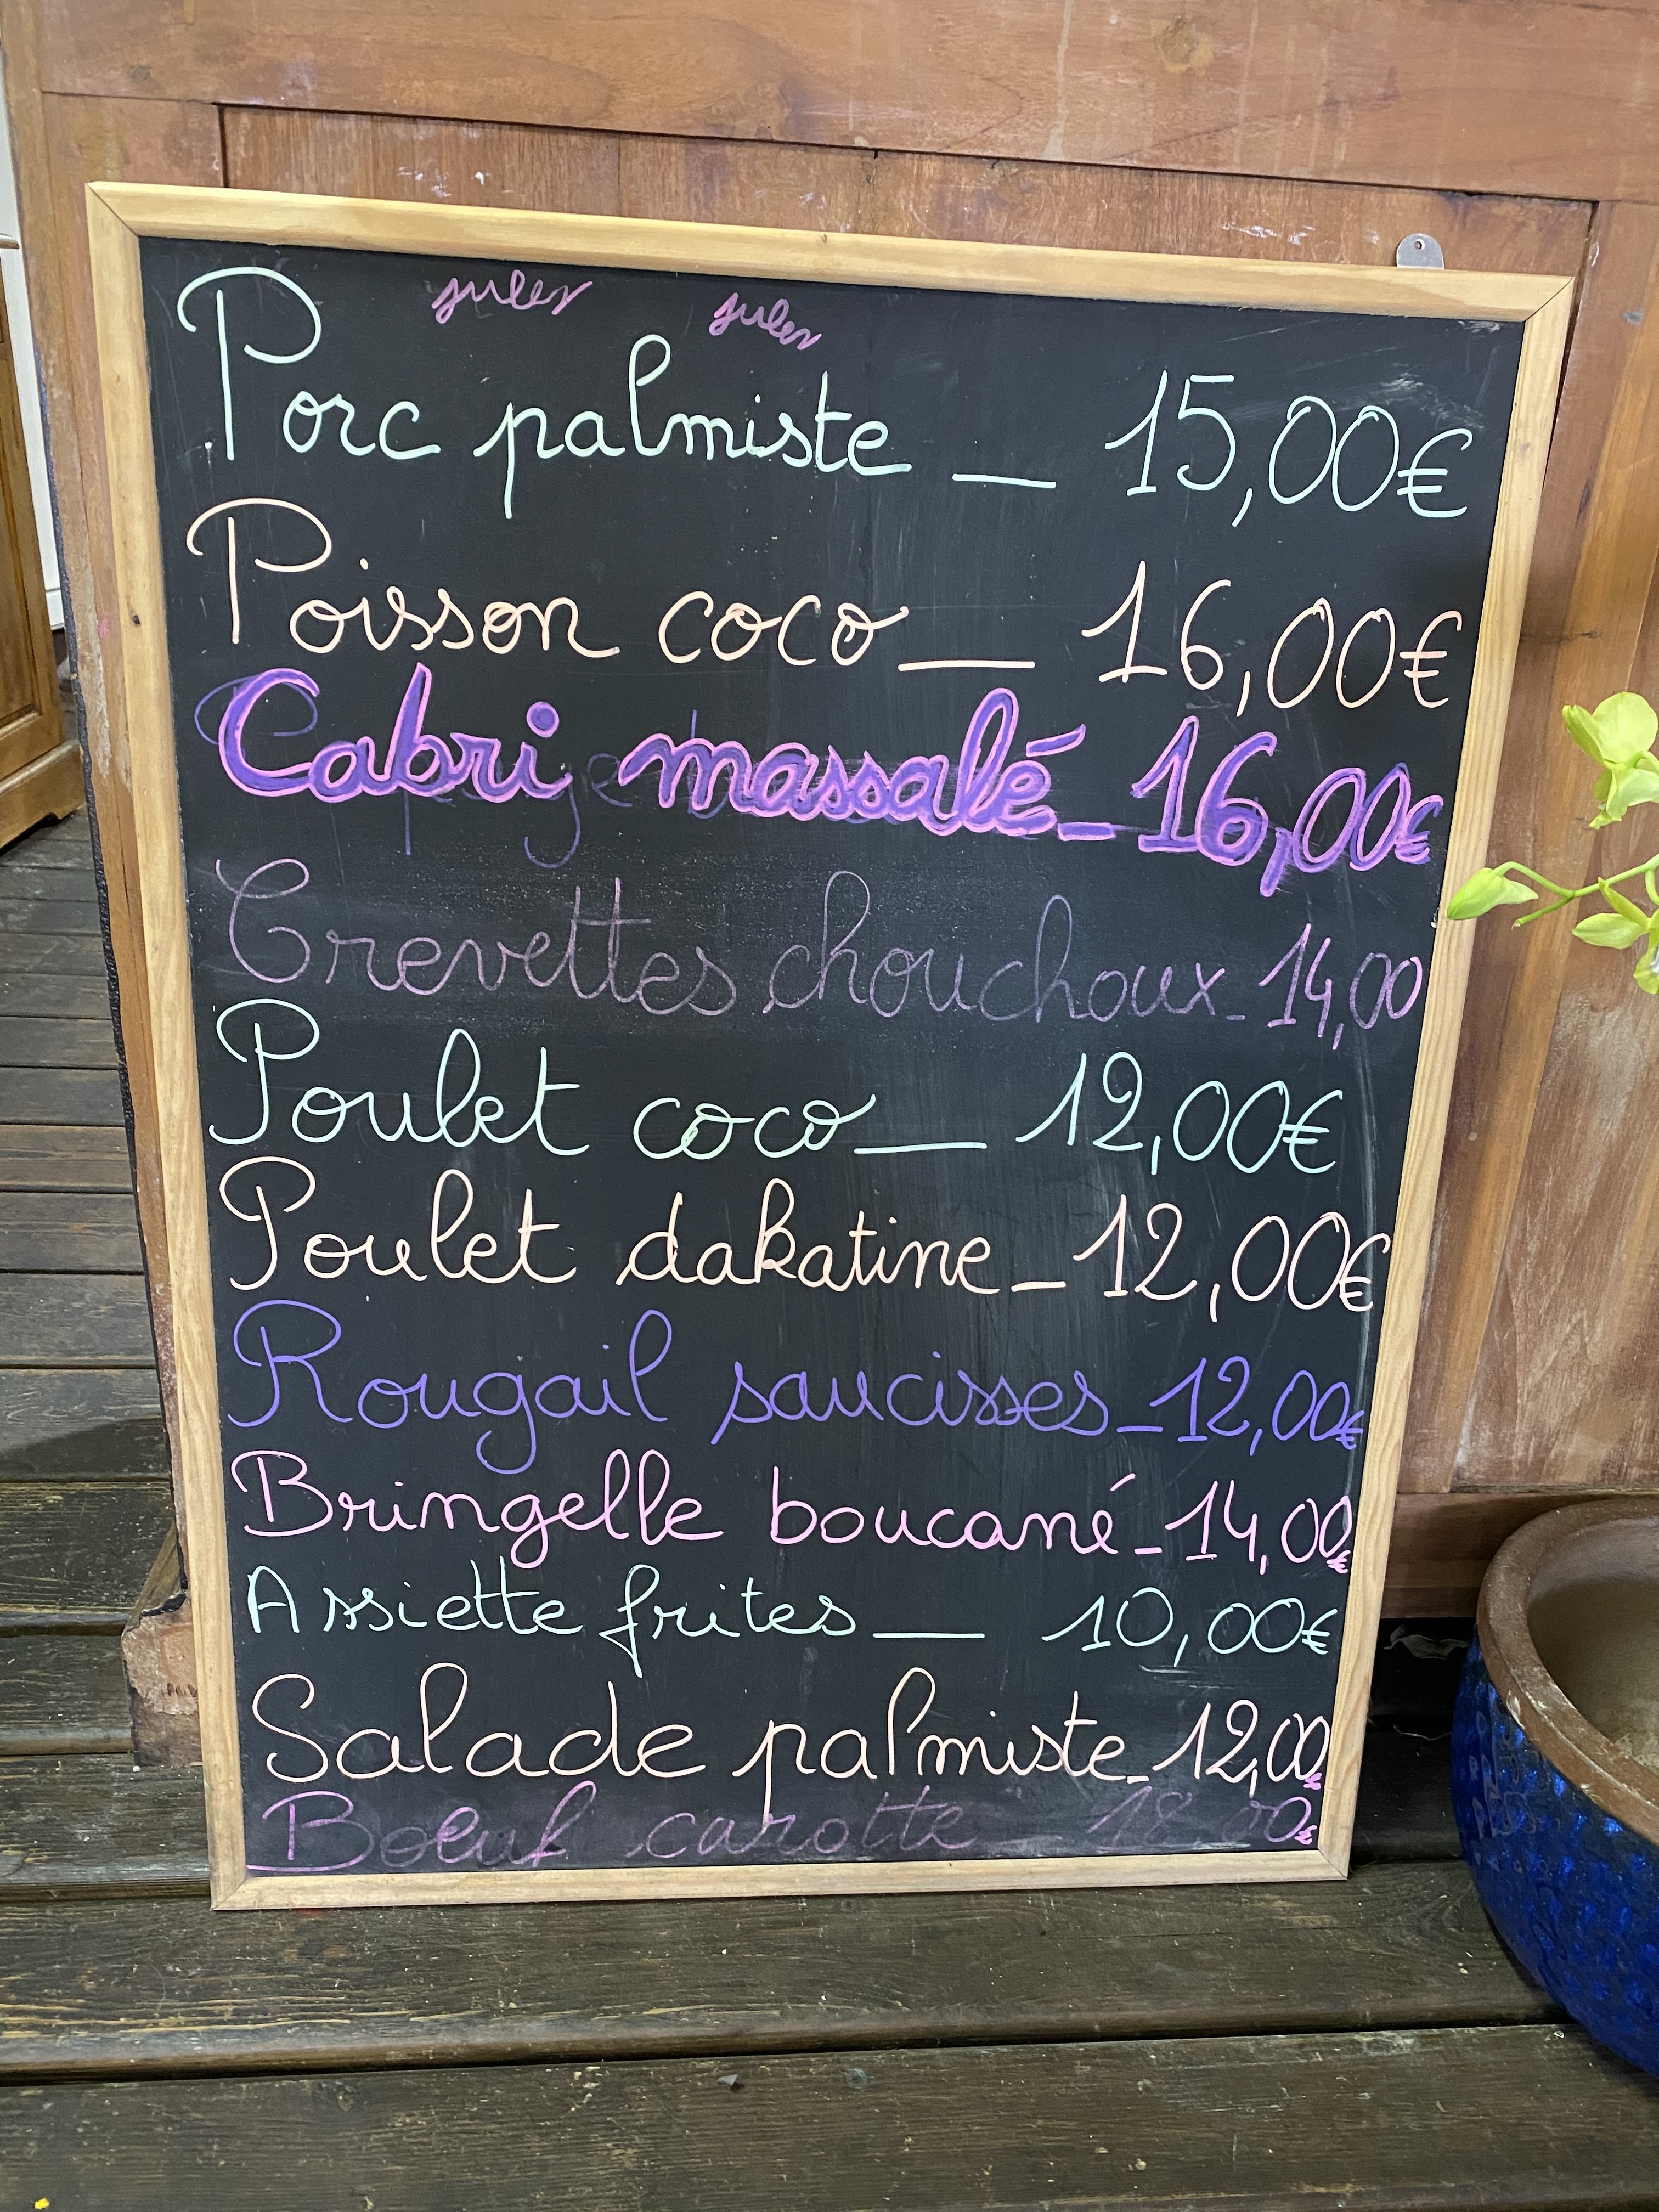 jules jules
Porc palmiste _ 15,00€
Poisson coco _ 16,00€
Cabri massalé _ 16,00€
Crevettes chouchoux _ 14,00
Poulet coco _ 12,00€
Poulet dakatine _ 12,00€
Rougail saucisses _ 12,00€
Bringelle boucané _ 14,00€
Assiette frites _ 10,00€
Salade palmiste _ 12,00€
Boeuf carotte _ 12,00€